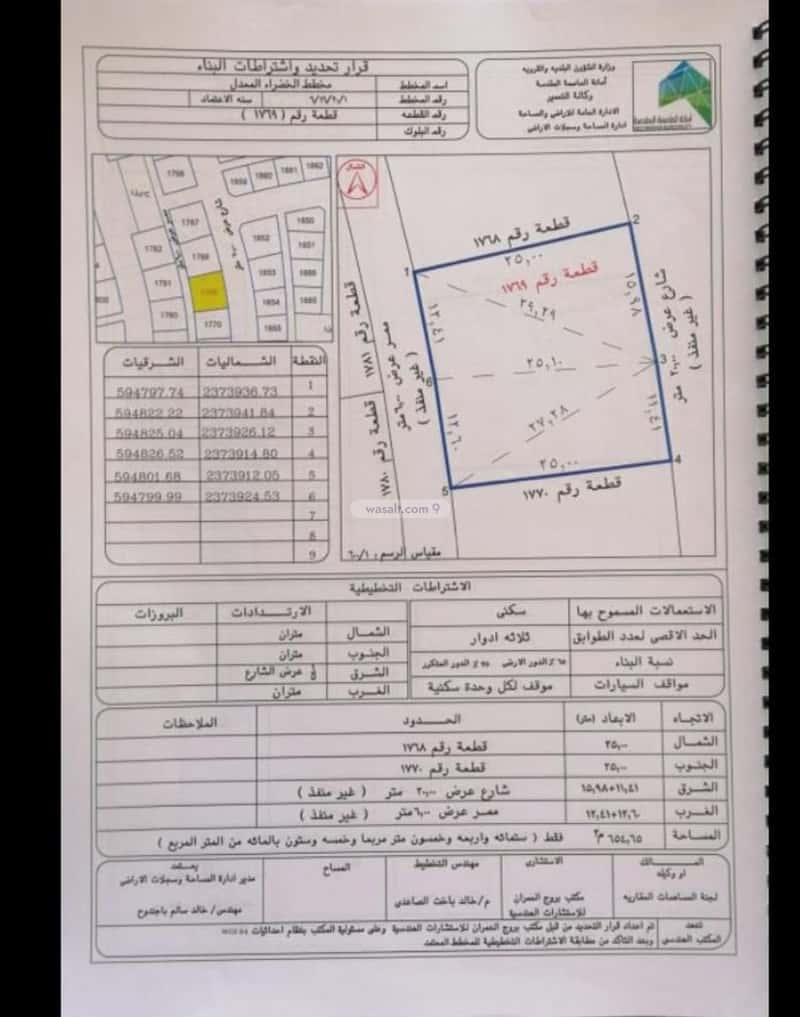 وزارة الشؤون البلدية والقروية
أمانة العاصمة المقدسة
وكالة التعمير
الادارة العامة للاراضي والمساحة
ادارة المساحة وسجلات الاراضي
قرار تحديد واشتراطات البناء
اسم المخطط مخطط الخضراء المعدل
رقم المخطط سنه الاعتماد
رقم القطعه قطعة رقم ( ١٧٦٩ )
رقم البلوك
الشمال
قطعة رقم ١٧٦٨
٢٥,٠٠
قطعة رقم ١٧٦٩
٢٩,٢٩
٢٥,١٠
٢٧,٢٨
٢٥,٠٠
قطعة رقم ١٧٧٠
١٥,٩٨
١١,٤١
١٢,٤١
١٢,٦٠
شارع عرض ٢٠,٠٠ متر
( غير منفذ )
ممر عرض ٦,٠٠ متر
( غير منفذ )
قطعة رقم ١٧٨١
قطعة رقم ١٧٨٠
1
2
3
4
5
6
مقياس الرسم: ٦٠٠/١
1787
1788
1770
1782
1781
1780
1852
1853
1854
1850
1851
النقطة الشماليات الشرقيات
1 2373936.73 594797.74
2 2373941.84 594822.22
3 2373926.12 594825.04
4 2373914.80 594826.52
5 2373912.05 594801.68
6 2373924.53 594799.99
7
8
9
wasalt.com
الاشتراطات التخطيطية
الاستعمالات المسموح بها سكنى
الحد الاقصى لعدد الطوابق ثلاثه ادوار
نسبة البناء ٦٥ ٪ الدور الارضي ٧٥ ٪ الدور المتكرر
مواقف السيارات موقف لكل وحدة سكنية
الارتدادات البروزات
الشمال متران
الجنوب متران
الشرق عرض الشارع
الغرب متران
الاتجاه الابعاد (متر) الحدود الملاحظات
الشمال ٢٥,٠٠ قطعة رقم ١٧٦٨
الجنوب ٢٥,٠٠ قطعة رقم ١٧٧٠
الشرق ١٥,٩٨+١١,٤١ شارع عرض ٢٠,٠٠ متر ( غير منفذ )
الغرب ١٢,٤١+١٢,٦٠ ممر عرض ٦,٠٠ متر ( غير منفذ )
المساحة ٦٥٤,٦٥ م٢ فقط ( ستمائه واربعه وخمسون متر مربعا وخمسه وستون بالمائه من المتر المربع )
المالك او وكيله
لجنة المساهمات العقاريه
الاستشاري
مكتب بروج العمران للاستشارات الهندسية
مهندس التخطيط
م/خالد باخت الصاعدي
المساح
يعتمد
مدير ادارة المساحة وسجلات الاراضي
مهندس/ خالد سالم باجندوح
تعهد المكتب الهندسي
تم اعداد قرار التحديد من قبل مكتب بروج العمران للاستشارات الهندسية وعلى مسئولية المكتب بنظام احداثيات WGS 84
وبعد التاكد من مطابقة الاشتراطات التخطيطية للمخطط المعتمد